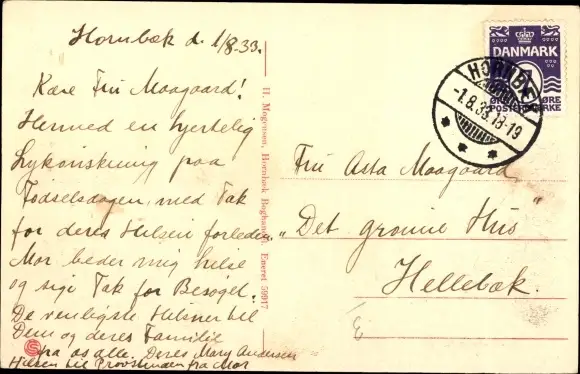 Hornbæk d. 1/8.33.
Kære Fru Maagaard!
Hermed en hjertelig
Lykönskning paa
Födselsdagen, med Tak
for deres Hilsen forleden.
Mor beder mig hilse
og sige Tak for Besöget.
De venligste Hilsner til
Dem og deres Familie
fra os alle. Deres Mary Andersen
Hilsen til Provstinden fra Mor
H. Mogensen, Hornbæk Boghandel. Eneret 59917
DANMARK
HORNBÆK
-1.8.33.18-19
Fru Asta Maagaard
"Det grönne Hus"
Hellebæk.